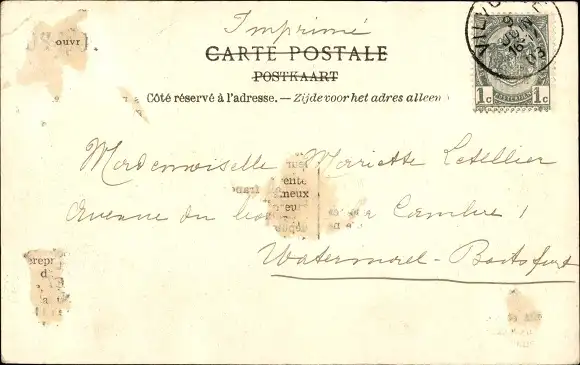 Imprimé
CARTE POSTALE
POSTKAART
Côté réservé à l'adresse. — Zijde voor het adres alleen
ouvr
1c 1c
Mademoiselle Mariette Letellier
Avenue du de la Cambre 1
Watermael-Boitsfort
ente
ineux
erepr